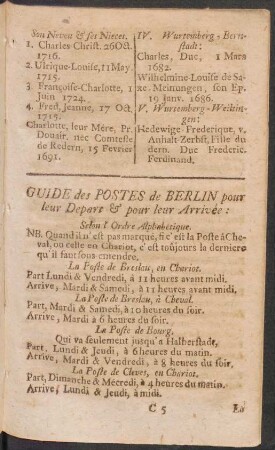 Son Neveu & ses Nieces.
1. Charles Christ. 26 Oct.
1716.
2. Ulrique-Louise, 11 May.
1715.
3. Françoise-Charlotte, 1
Juin 1724.
4. Fred. Jeanne, 17 Oct.
1715.
Charlotte, leur Mére, Pr.
Douair. née Comtesse
de Redern, 15 Fevrier
1691.
IV. Wurtemberg-Bern-
stadt:
Charles, Duc, 1 Mars
1682.
Wilhelmine-Louise de Sa-
xe-Meinungen, son Ep.
19 Janv. 1686.
V. Wurtemberg-Weiltin-
gen:
Hedewige-Frederique, v.
Anhalt-Zerbst, Fille du
dern. Duc Frederic-
Ferdinand.
GUIDE des POSTES de BERLIN pour
leur Depart & pour leur Arrivée:
Selon l'Ordre Alphabétique.
NB. Quand il n'est pas marqué, si c'est la Poste à Che-
val, ou celle en Chariot, c'est toujours la derniere
qu'il faut sous-entendre.
La Poste de Breslau, en Chariot.
Part Lundi & Vendredi, à 11 heures avant midi.
Arrive, Mardi & Samedi, à 11 heures avant midi.
La Poste de Breslau, à Cheval.
Part, Mardi & Samedi, à 10 heures du soir.
Arrive, Mardi à 6 heures du soir.
La Poste de Bourg,
Qui va seulement jusqu'à Halberstadt.
Part, Lundi & Jeudi, à 6 heures du matin.
Arrive, Mardi & Vendredi, à 8 heures du soir.
La Poste de Cleves, en Chariot.
Part, Dimanche & Mécredi, à 4 heures du matin.
Arrive, Lundi & Jeudi, à midi.
C 5